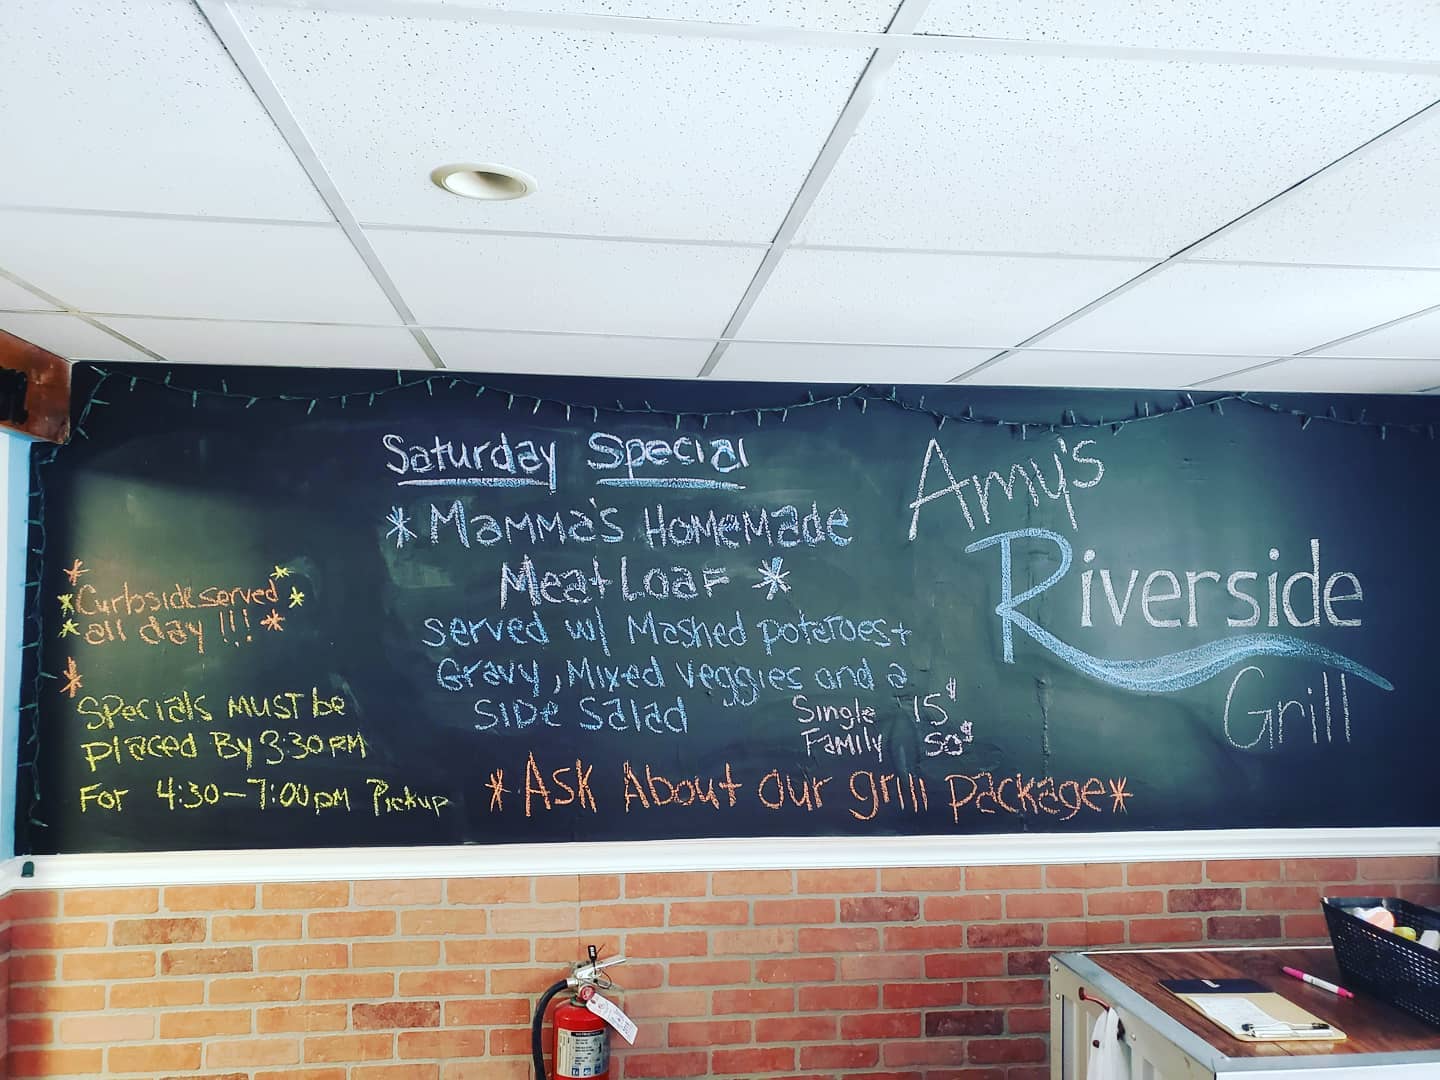 Saturday Special
*Mamma's Homemade
Meatloaf *
served w/ Mashed potatoes +
Gravy, Mixed veggies and a
Side Salad
Single 15$
Family 50$
*Ask About our grill package*
Curbside served
all day!!!
Specials must be
placed By 3:30 PM
For 4:30-7:00pm Pickup
Amy's
Riverside
Grill